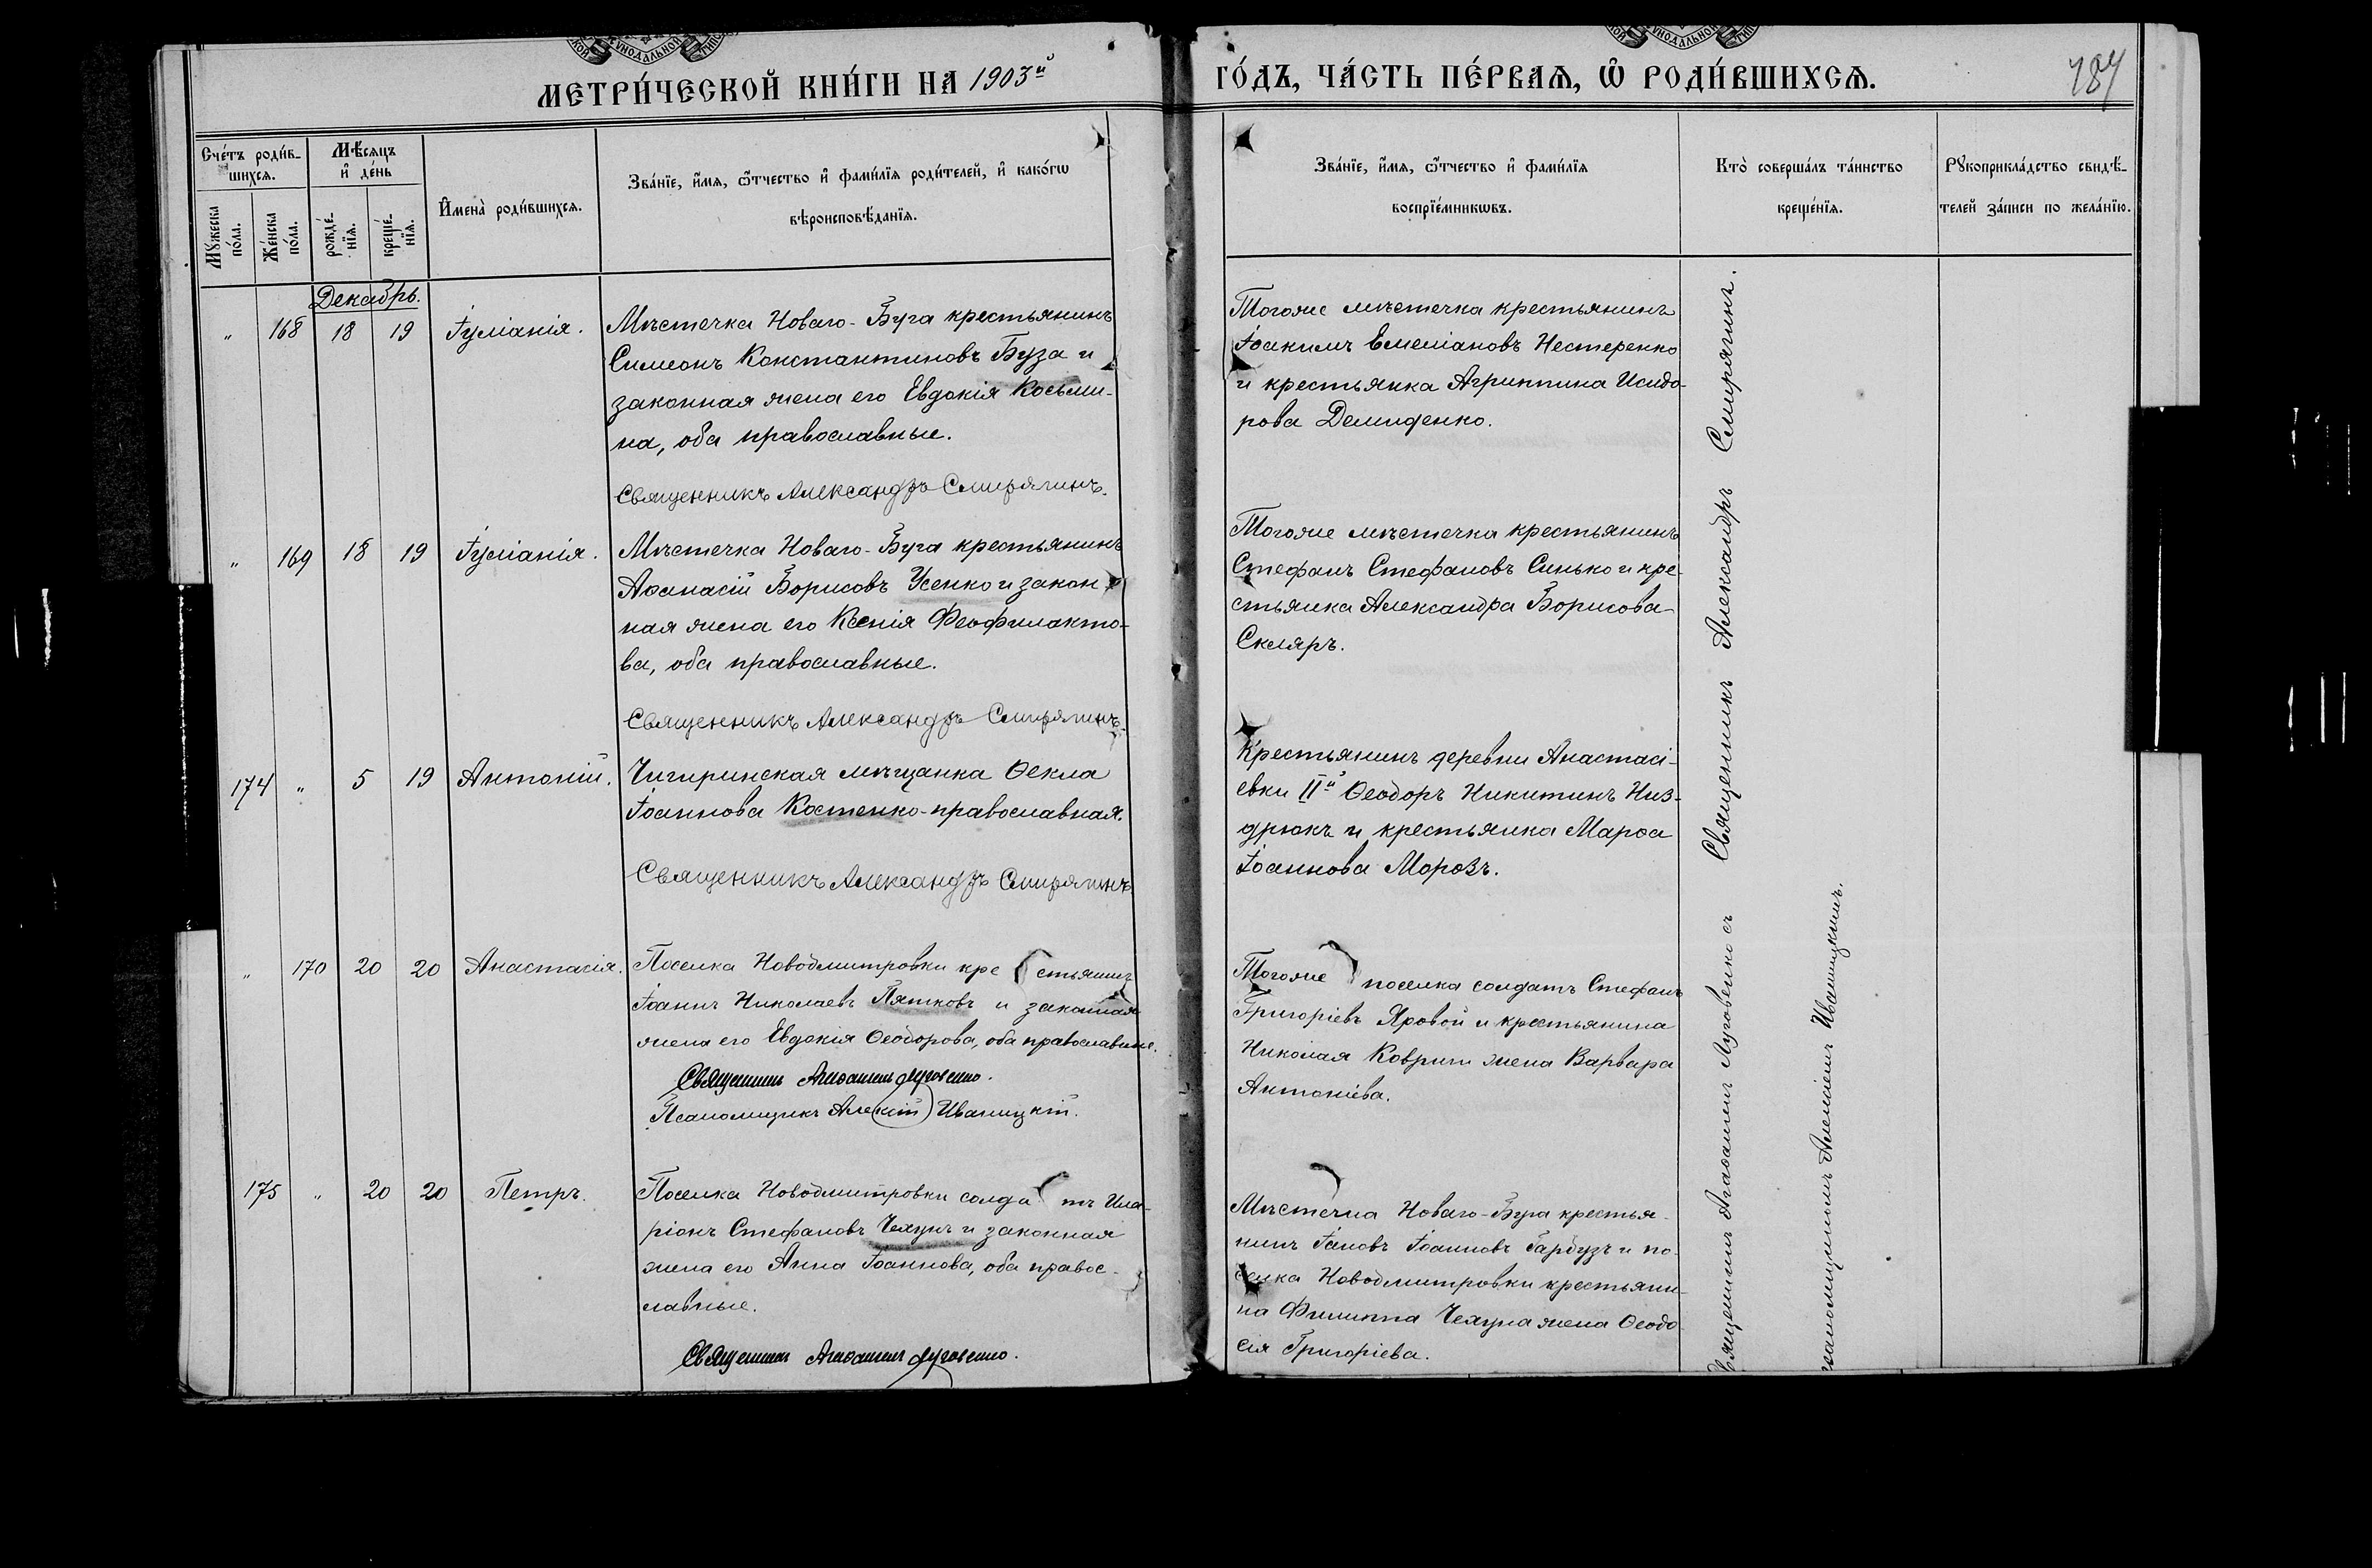 МЕТРИ́ЧЕСКОЙ КНИ́ГИ НА 1903й
ГО́ДЪ, ЧА́СТЬ ПЕ́РВАѦ, Ѡ҆ РОДИ́ВШИХСѦ.
187
Сче́тъ роди́в-
шихсѧ.
Мꙋ́жеска
по́ла.
Же́нска
по́ла.
Мѣ́сѧцъ
и҆ де́нь
рожде́-
нїѧ.
креще́-
нїѧ.
И҆мена̀ роди́вшихсѧ.
Зва́нїе, и҆́мѧ, ѻ҆́тчество и҆ фами́лїѧ роди́телей, и҆ како́гѡ
вѣроисповѣ́данїѧ.
Зва́нїе, и҆́мѧ, ѻ҆́тчество и҆ фами́лїѧ
воспрїе́мникѡвъ.
Кто̀ соверша́лъ та́инство
креще́нїѧ.
Рꙋкоприкла́дство свидѣ́-
телей за́писи по жела́нїю.
Декабрь.
" 168 18 19 Іуліанія.
Мѣстечка Новаго-Буга крестьянинъ
Симеонъ Константиновъ Буза и
законная жена его Евдокія Косьми-
на, оба православные.
Священникъ Александръ Смирягинъ.
Тогоже мѣстечка крестьянинъ
Іоакимъ Емеліановъ Нестеренко
и крестьянка Агриппина Исидо-
рова Демиденко.
" 169 18 19 Іуліанія.
Мѣстечка Новаго-Буга крестьянинъ
Аѳанасій Борисовъ Усенко и закон
ная жена его Ксенія Феофилакто-
ва, оба православные.
Священникъ Александръ Смирягинъ.
Тогоже мѣстечка крестьянинъ
Стефанъ Стефановъ Синько и кре-
стьянка Александра Борисова
Скляръ.
174 " 5 19 Антоній.
Чигиринская мѣщанка Ѳекла
Іоаннова Костенко-православная.
Священникъ Александръ Смирягинъ
Крестьянинъ деревни Анастасі-
евки IIй Ѳеодоръ Никитинъ Низ-
дрюкъ и крестьянка Марѳа
Іоаннова Морозъ.
" 170 20 20 Анастасія.
Поселка Новодмитровки крестьянинъ
Іоаннъ Николаевъ Пятковъ и законная
жена его Евдокія Ѳеодорова, оба православные.
Священникъ Агаѳангелъ Луговенко.
Псаломщикъ Алексій Иваницкій.
Тогоже поселка солдатъ Стефанъ
Григоріевъ Яровой и крестьянина
Николая Ковриги жена Варвара
Антоніева.
175 " 20 20 Петръ.
Поселка Новодмитровки солдатъ Ила-
ріонъ Стефановъ Чехунъ и законная
жена его Анна Іоаннова, оба правос-
лавные.
Священникъ Агаѳангелъ Луговенко.
Мѣстечка Новаго-Буга крестья-
нинъ Іаковъ Іоанновъ Гарбузъ и по-
селка Новодмитровки крестьяни-
на Филиппа Чехуна жена Ѳеодо
сія Григоріева.
Священникъ Александръ Смирягинъ.
Священникъ Агаѳангелъ Луговенко съ
псаломщикомъ Алексіемъ Иваницкимъ.